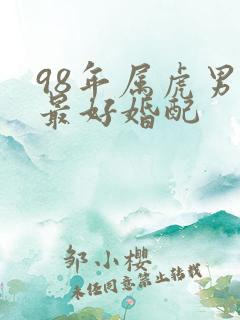 98年属虎男
最好婚配
邹小樱
未经同意禁止转载